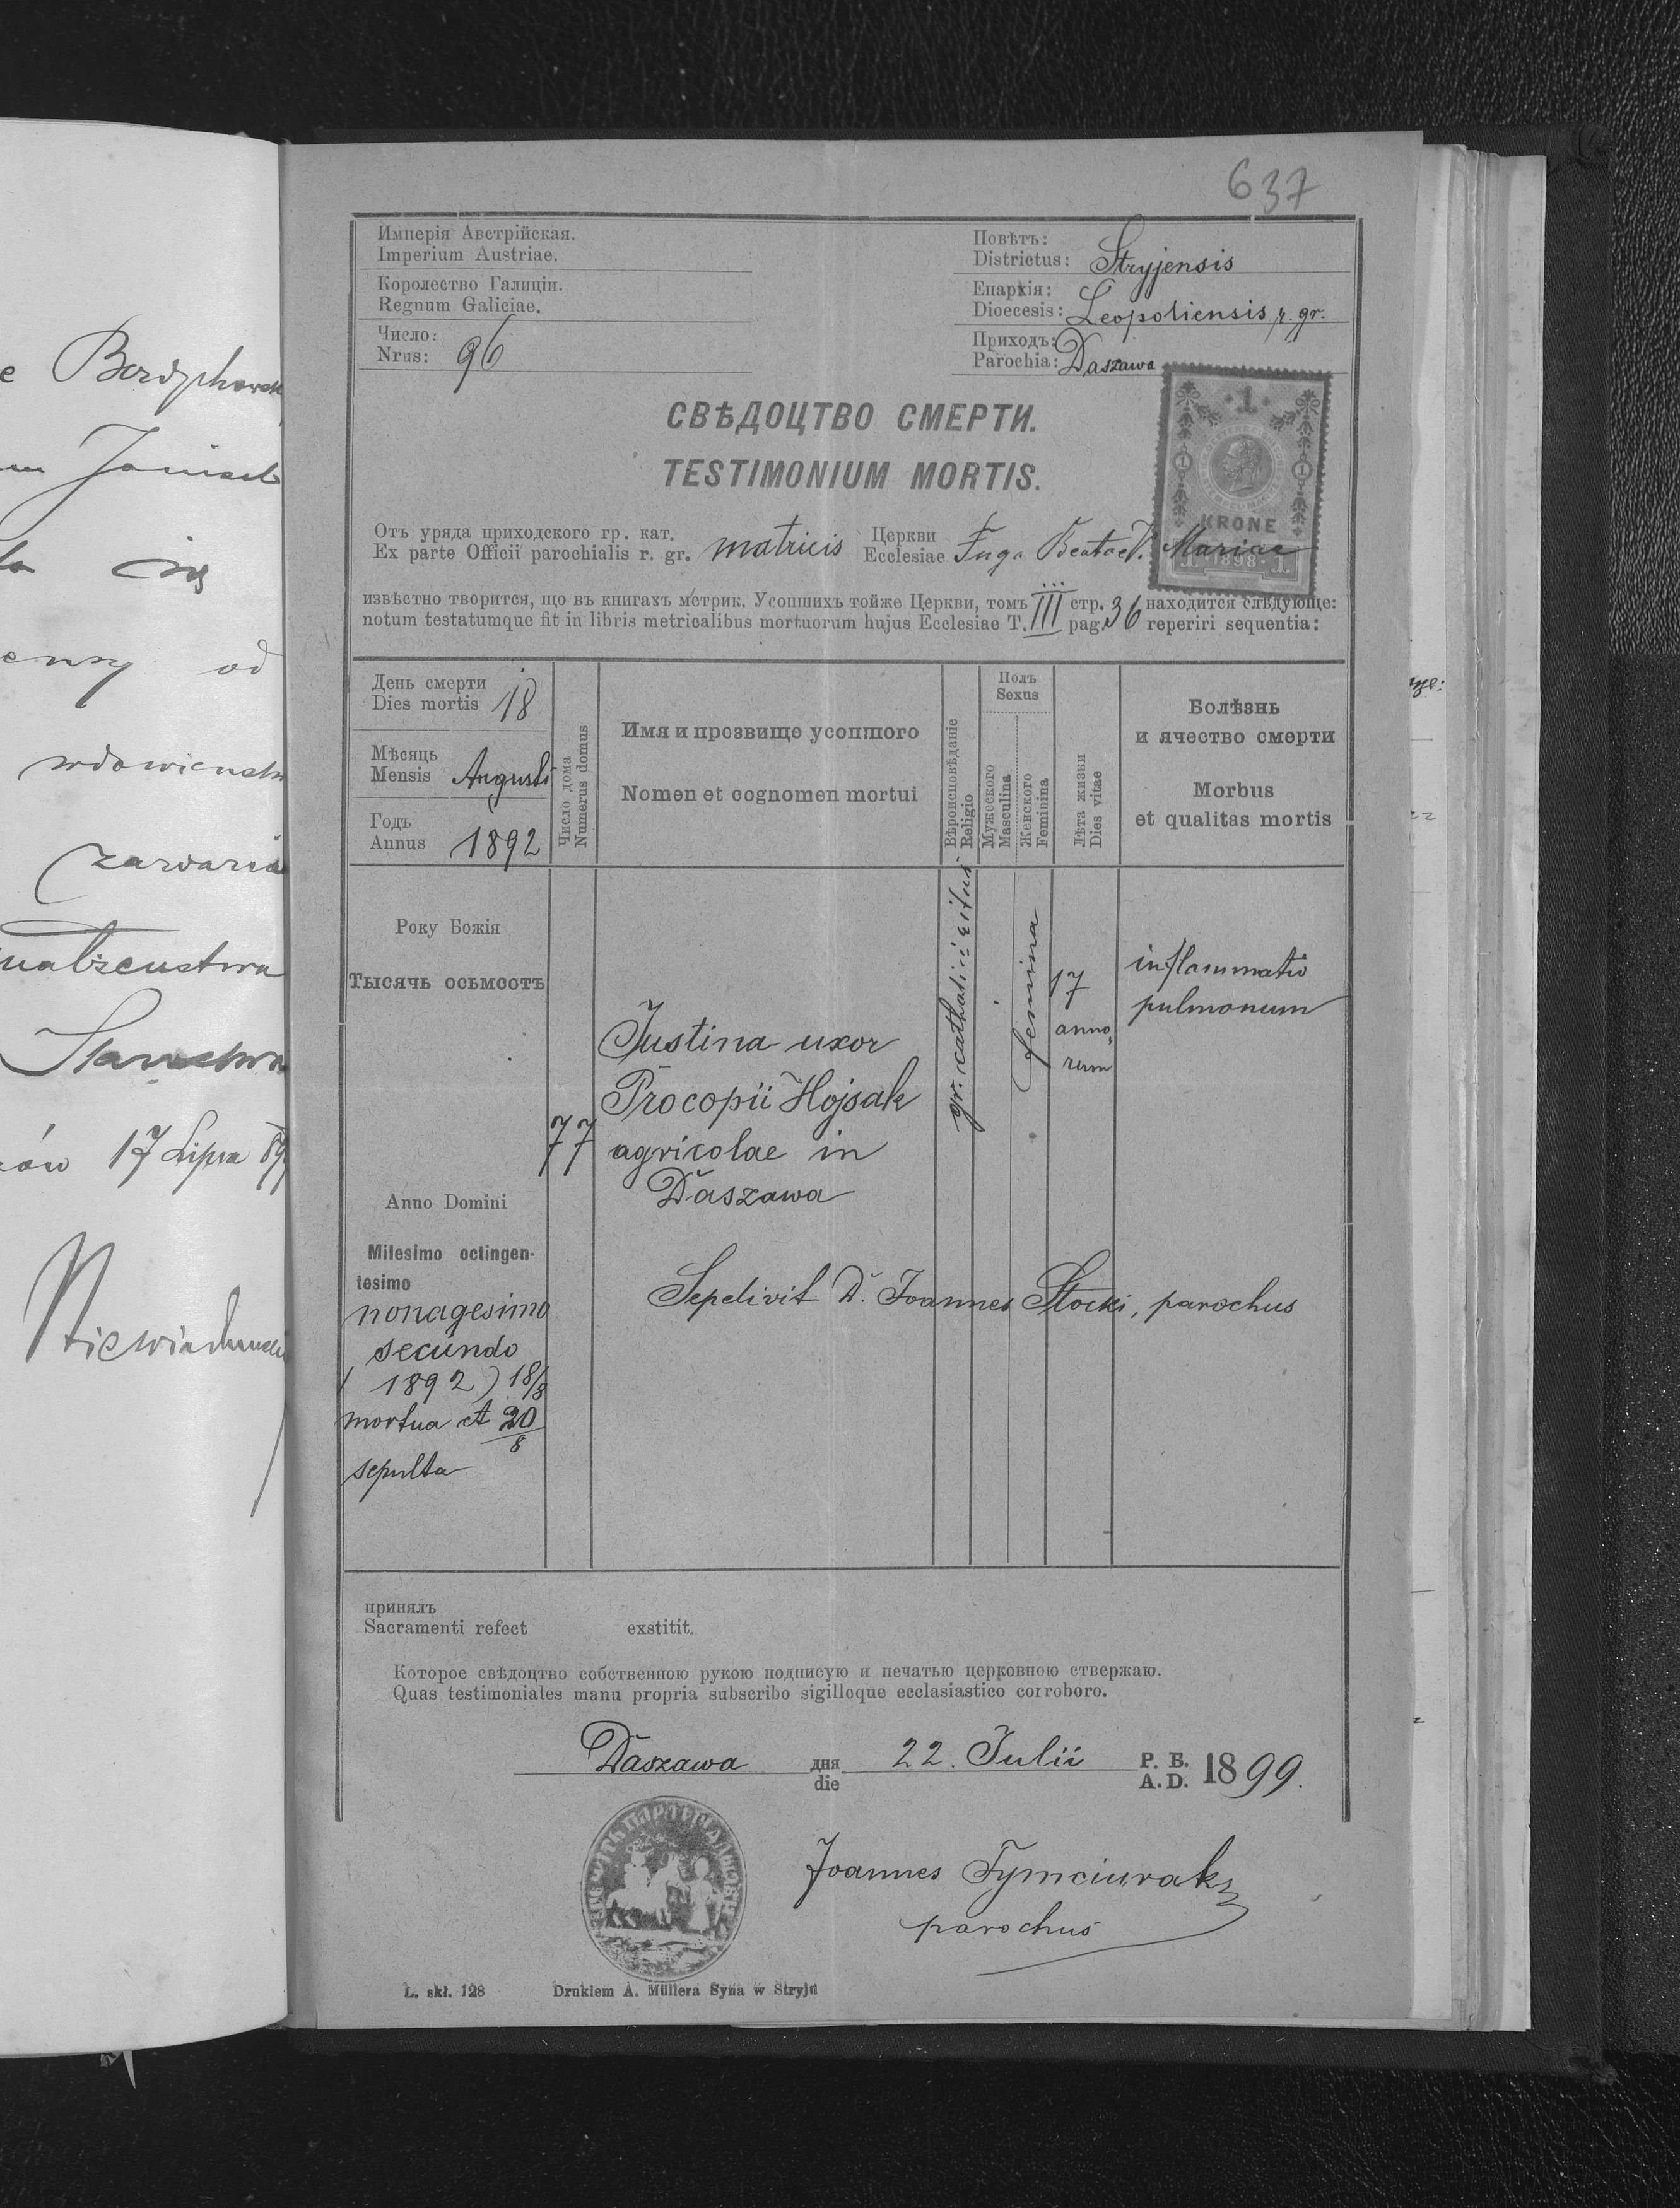 637
Имперія Австрійская.
Imperium Austriae.
Королество Галиціи.
Regnum Galiciae.
Число:
Nrus: 96
Повѣтъ:
Districtus: Stryjensis
Епархія:
Dioecesis: Leopoliensis r. gr.
Приходъ:
Parochia: Daszawa
1
KRONE
1898
СВѢДОЦТВО СМЕРТИ.
TESTIMONIUM MORTIS.
Отъ уряда приходского гр. кат. Церкви
Ex parte Officii parochialis r. gr. matricis Ecclesiae Fuga Beatae V. Mariae
извѣстно творится, що въ книгахъ метрик. Усопшихъ тойже Церкви, томъ III стр. 36 находится слѣдующе:
notum testatumque fit in libris metricalibus mortuorum hujus Ecclesiae T. pag. reperiri sequentia:
День смерти
Dies mortis 18
Мѣсяць
Mensis Augusti
Годъ
Annus 1892
Число дома
Numerus domus
Имя и прозвище усопшого
Nomen et cognomen mortui
Вѣроисповѣданіе
Religio
Полъ
Sexus
Мужеского
Masculina
Женского
Feminina
Лѣта жизни
Dies vitae
Болѣзнь
и ячество смерти
Morbus
et qualitas mortis
Року Божія
Тысячь осьмсотъ
Anno Domini
Milesimo octingen-
tesimo
nonagesimo
secundo
(1892) 18/8
mortua et 20/8
sepulta
77
Justina uxor
Procopii Hojsak
agricolae in
Daszawa
gr. catholici ritus
femina
17
anno,
rum
inflammatio
pulmonum
Sepelivit D. Joannes Stocki, parochus
принялъ
Sacramenti refect exstitit.
Которое свѣдоцтво собственною рукою подписую и печатью церковною ствержаю.
Quas testimoniales manu propria subscribo sigilloque ecclasiastico corroboro.
Daszawa дня 22. Julii Р. Б. 1899.
die A. D.
Joannes Tymciurak
parochus
L. skł. 128 Drukiem A. Müllera Syna w Stryju
od
17 Lipca